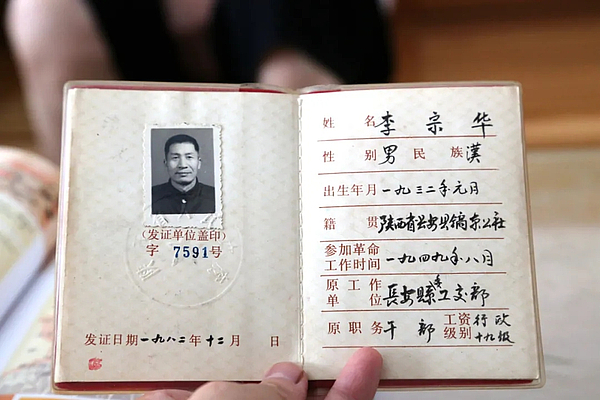 (发证单位盖印)
字 7591号
发证日期一九八二年十二月 日
姓 名 李宗华
性 别 男 民 族 汉
出生年月 一九三二年元月
籍 贯 陕西省长安县镐京公社
参加革命
工作时间 一九四九年八月
原工作
单 位 长安县委工交部
原职务 干部 工资
级别 行政
十九级